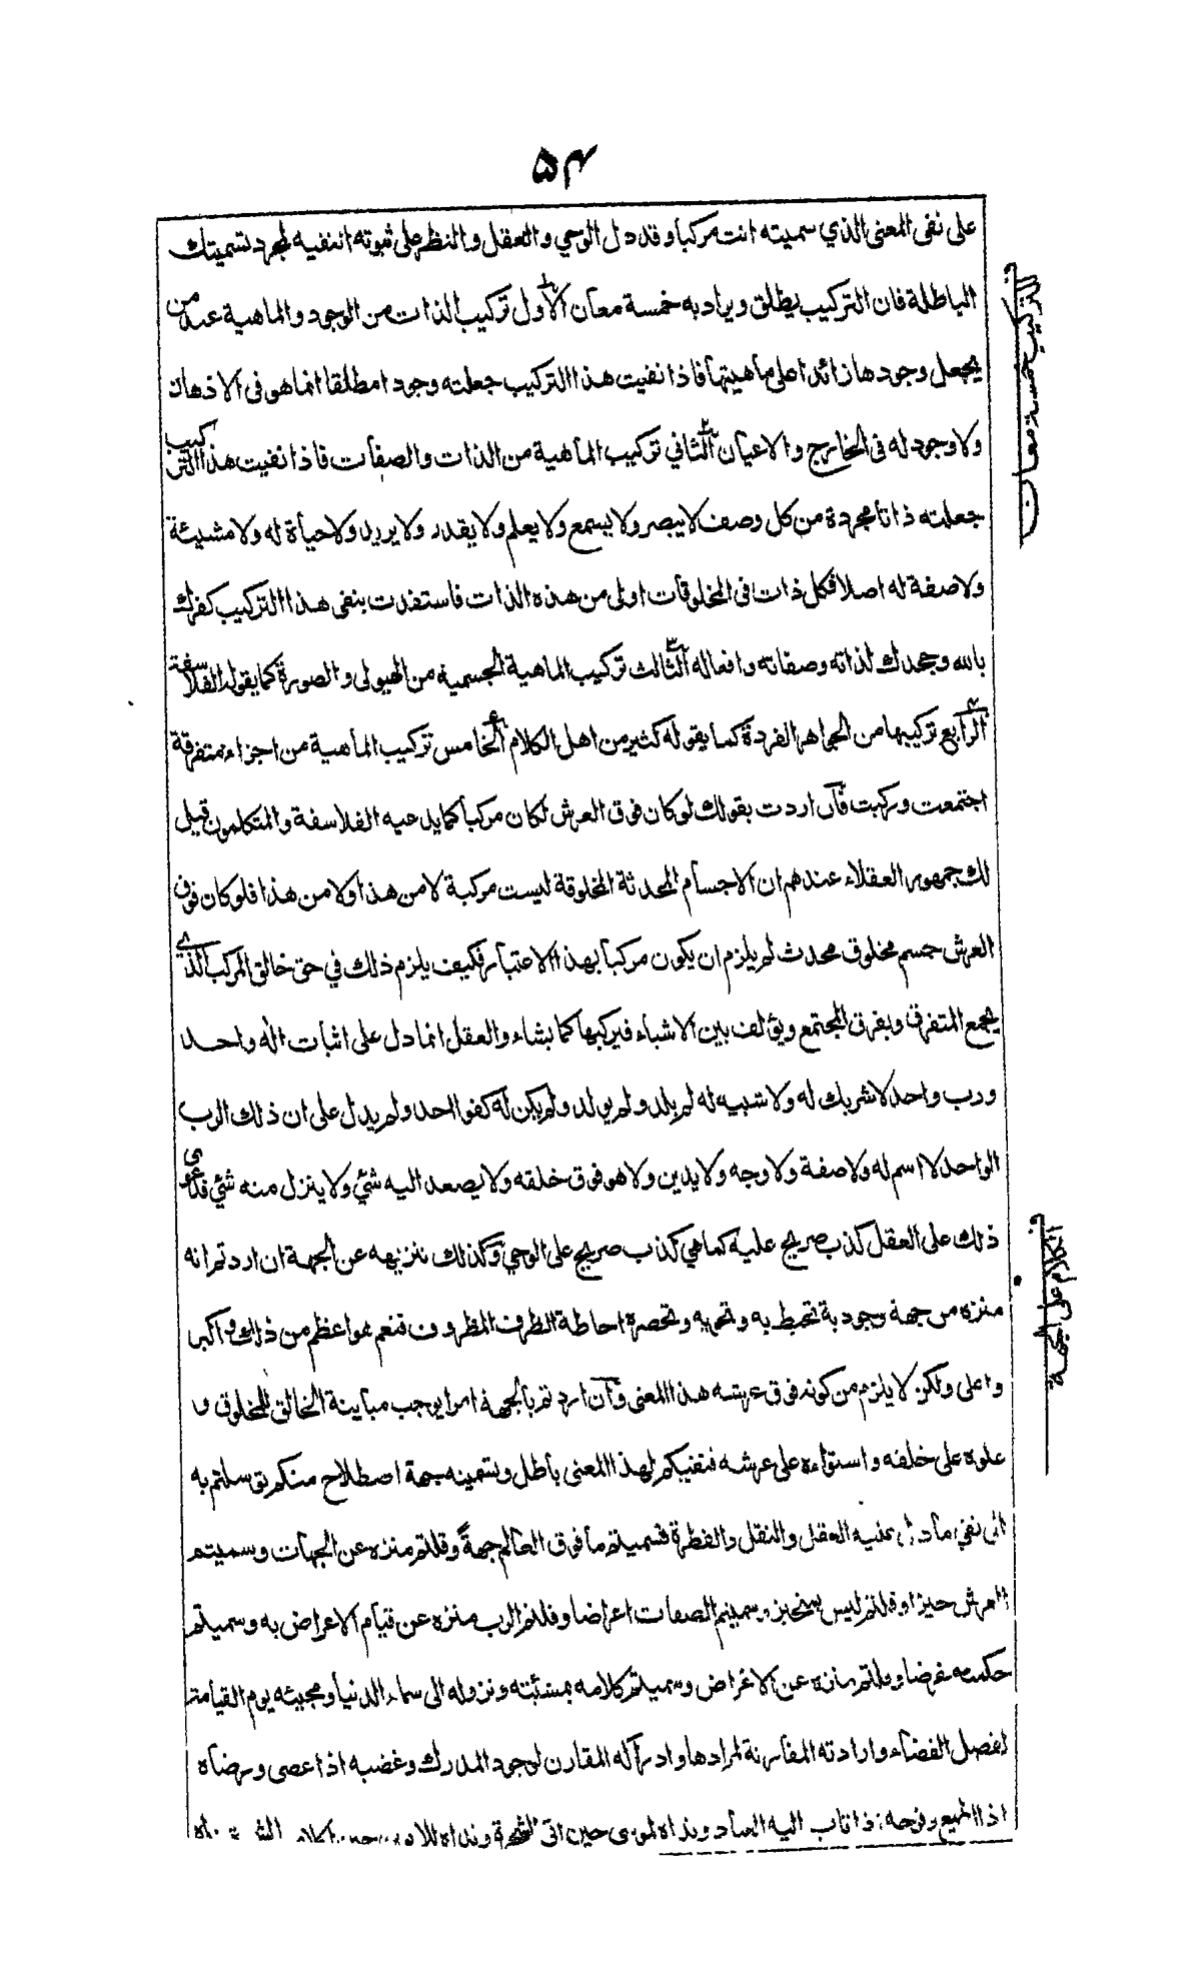 ۵۴
على نفى المعنى الذي سميته انت مركبا وقد دل الوحي والعقل والنظر على ثبوته اتنفيه لمجرد تسميتك
الباطلة فان التركيب يطلق ويراد به خمسة معان الاول تركيب الذات من الوجود والماهية عند من
يجعل وجودها زائدا على ماهيتها فاذا نفيت هذا التركيب جعلته وجودا مطلقا انما هو فى الاذهان
ولا وجود له فى الخارج والاعيان الثاني تركيب الماهية من الذات والصفات فاذا نفيت هذا التركيب
جعلته ذاتا مجردة من كل وصف لا يبصر ولا يسمع ولا يعلم ولا يقدر ولا يريد ولا حياة له ولا مشيئة
ولا صفة له اصلا فكل ذات فى المخلوقات اولى من هذه الذات فاستفدت بنفى هذا التركيب كفرك
بالله وجحدك لذاته وصفاته وافعاله الثالث تركيب الماهية الجسمية من الهيولى والصورة كما يقوله الفلاسفة
الرابع تركيبها من الجواهر الفردة كما يقوله كثير من اهل الكلام الخامس تركيب الماهية من اجزاء متفرقة
اجتمعت وركبت فان اردت بقولك لو كان فوق العرش لكان مركبا كما يدعيه الفلاسفة والمتكلمون قيل
لك جمهور العقلاء عندهم ان الاجسام المحدثة المخلوقة ليست مركبة لا من هذا ولا من هذا فلو كان فوق
العرش جسم مخلوق محدث لم يلزم ان يكون مركبا بهذا الاعتبار فكيف يلزم ذلك في حق خالق المركب الذي
يجمع المتفرق ويفرق المجتمع ويؤلف بين الاشياء فيركبها كما يشاء والعقل انما دل على اثبات اله واحد
ورب واحد لا شريك له ولا شبيه له لم يلد ولم يولد ولم يكن له كفوا احد ولم يدل على ان ذلك الرب
الواحد لا اسم له ولا صفة ولا وجه ولا يدين ولا هو فوق خلقه ولا يصعد اليه شئ ولا ينزل منه شئ فدعوى
ذلك على العقل كذب صريح عليه كما هي كذب صريح على الوحي وكذلك تنزيهه عن الجهة ان اردتم انه
منزه من جهة وجودية تحيط به وتحويه وتحصره احاطة الظرف المظروف فنعم هو اعظم من ذلك واكبر
واعلى ولكن لا يلزم من كونه فوق عرشه هذا المعنى وان اردتم بالجهة امرا يوجب مباينة الخالق للمخلوق و
علوه على خلقه واستواءه على عرشه فنفيكم لهذا المعنى باطل وتسميته جهة اصطلاح منكم توسلتم به
الى نفي ما دل عليه العقل والنقل والفطرة فسميتم ما فوق العالم جهةً وقلتم منزه عن الجهات وسميتم
العرش حيزا وقلتم ليس بمتحيز وسميتم الصفات اعراضا وقلتم الرب منزه عن قيام الاعراض به وسميتم
حكمته غرضا وقلتم منزه عن الاغراض وسميتم كلامه بمشئته ونزوله الى سماء الدنيا ومجيئه يوم القيامة
لفصل القضاء وارادته المقارنة لمرادها وادراكه المقارن لوجود المدرك وغضبه اذا عصى ورضاه
اذا اطيع وفرحه اذا تاب اليه العباد ونداه لموسى حين اتى الشجرة ونداه للابوين حين اكلا من الشجرة
للتركيب خمسة معان
الكلام على الجهة